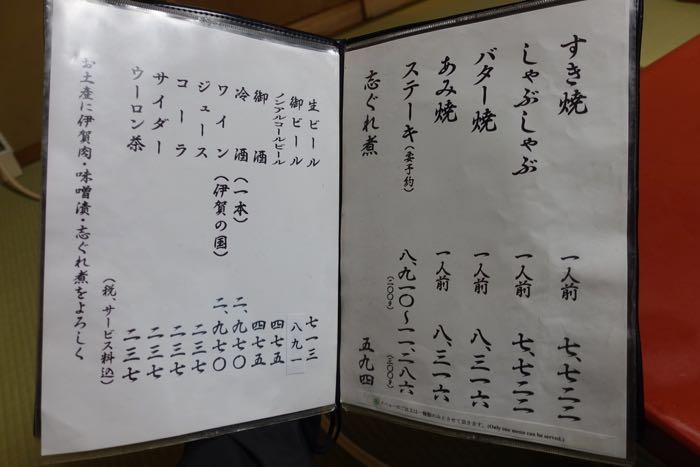 すき焼 一人前 七、七二二
しゃぶしゃぶ 一人前 七、七二二
バター焼 一人前 八、三一六
あみ焼 一人前 八、三一六
ステーキ(要予約) 八、九一〇〜一一、二八六
(二〇〇g) (二〇〇g)
志ぐれ煮 五九四
メニューのご注文は一種類のみとさせて頂きます。(Only one menu can be served.)
生ビール 七一三
御ビール 八九一
ノンアルコールビール 四七五
御酒 四七五
冷酒(一本) 二、九七〇
ワイン(伊賀の国) 二、九七〇
ジュース 二三七
コーラ 二三七
サイダー 二三七
ウーロン茶 二三七
(税、サービス料込)
お土産に伊賀肉・味噌漬・志ぐれ煮をよろしく